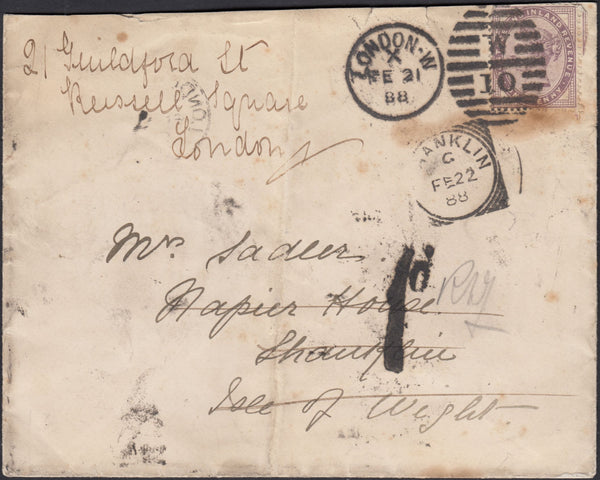 21 Guildford St
Russell Square
London
LONDON·W
X
FE 21
88
W
10
INLAND REVENUE
ANKLIN
G
FE 22
88
Mr Sadler
Napier House
Shanklin
Isle of Wight